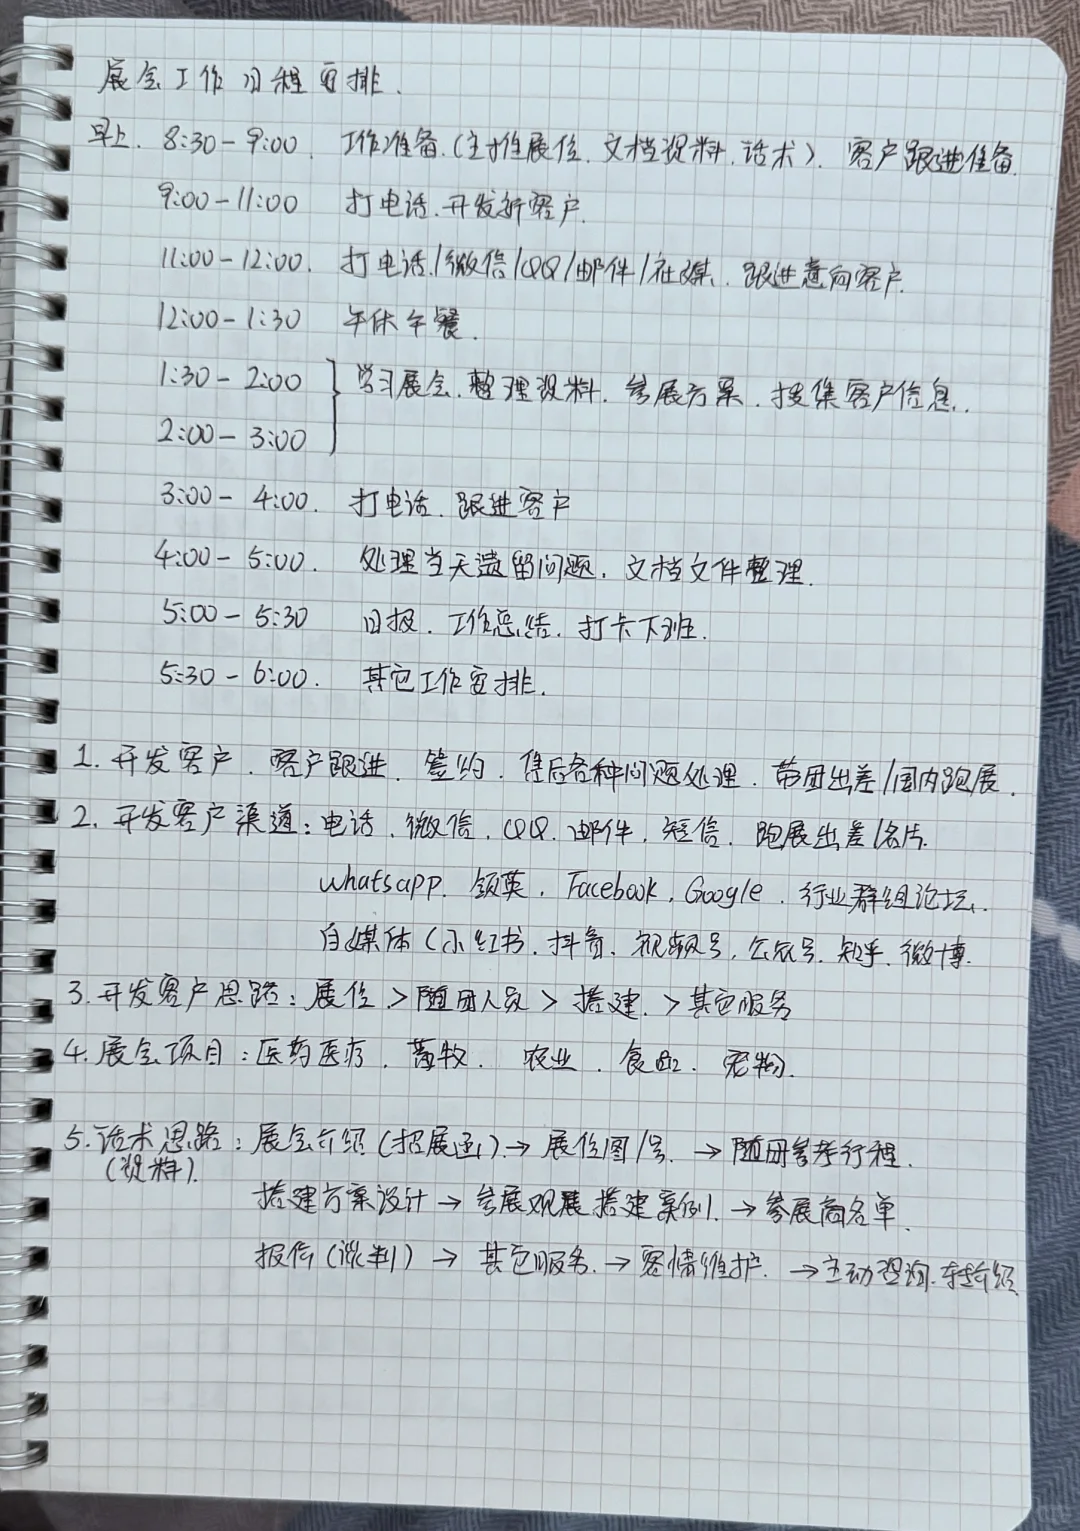 展会工作日程安排.
早上. 8:30-9:00. 工作准备.(主推展位、文档资料、话术)、客户跟进准备.
9:00-11:00 打电话、开发新客户.
11:00-12:00. 打电话/微信/QQ/邮件/社媒、跟进意向客户.
12:00-1:30 午休午餐.
1:30-2:00 学习展会、整理资料、参展方案、搜集客户信息.
2:00-3:00
3:00-4:00. 打电话、跟进客户
4:00-5:00. 处理当天遗留问题、文档文件整理.
5:00-5:30 日报、工作总结、打卡下班.
5:30-6:00. 其它工作安排.
1. 开发客户、客户跟进、签约、售后各种问题处理、带团出差/国内跑展.
2. 开发客户渠道:电话、微信、QQ、邮件、短信、跑展出差/名片.
whatsapp、领英、Facebook、Google、行业群组论坛.
自媒体(小红书、抖音、视频号、公众号、知乎、微博.
3. 开发客户思路:展位>随团人员>搭建.>其它服务
4. 展会项目:医药医疗、畜牧、农业、食品、宠物.
5. 话术思路:展会介绍(招展函)→展位图/号.→随团参考行程.
(资料).
搭建方案设计→参展观展搭建案例.→参展商名单.
报价(谈判)→其它服务.→客情维护.→主动咨询.转介绍